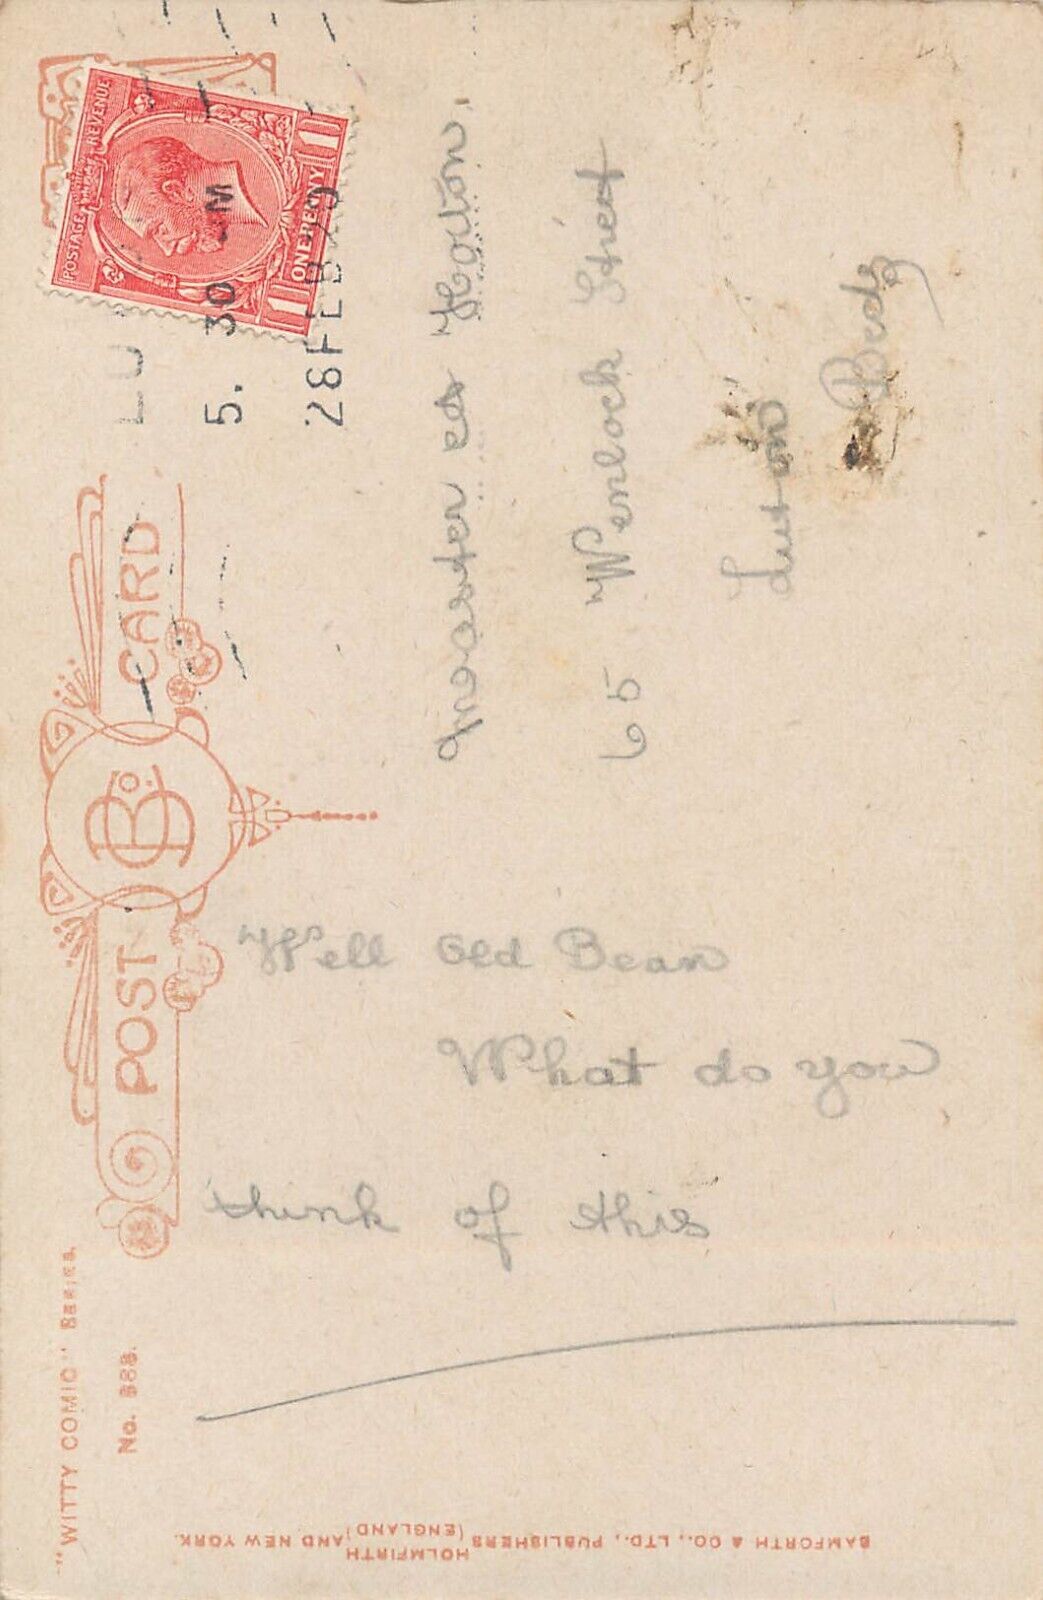 "WITTY COMIC" SERIES.
No. 868.
POST CARD
B Co
POSTAGE REVENUE
1 ONE PENNY 1
LU
5. 30 M
28 FEB 20
Well Old Bean
What do you
think of this
Master
65 Wenlock Street
Luton
Beds
BAMFORTH & CO., LTD., PUBLISHERS
HOLMFIRTH (ENGLAND) AND NEW YORK.